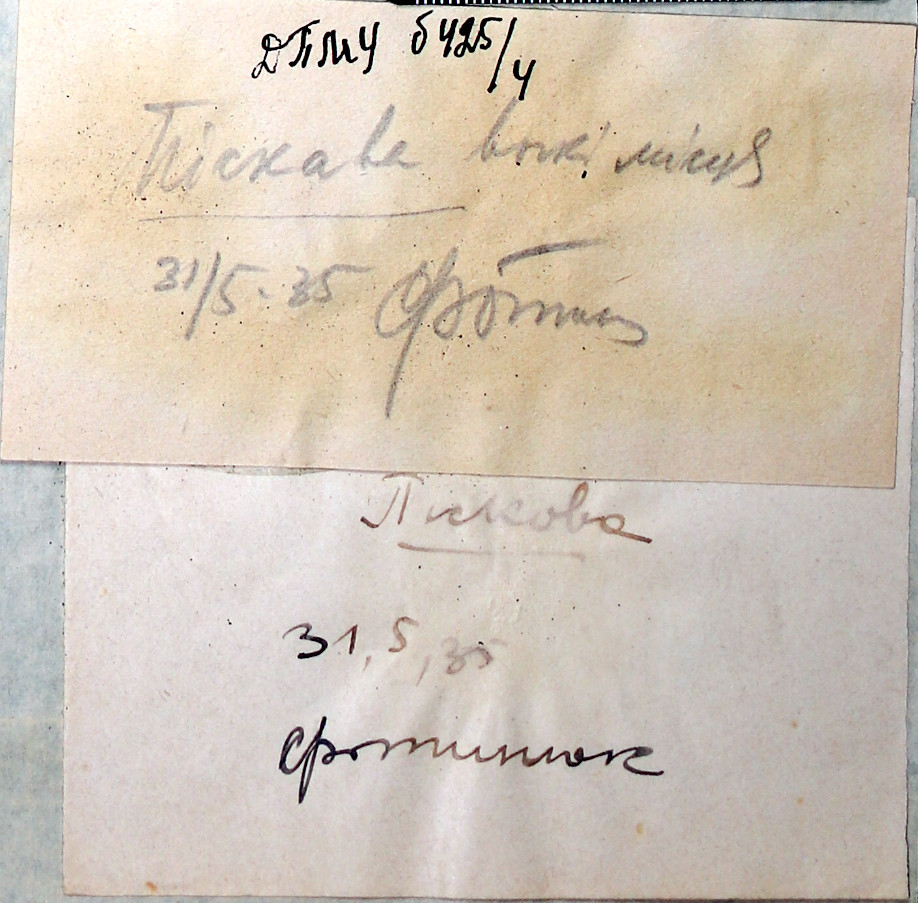 ДПМЧ б425/4
Піскава вогкі місця
31/5-35 Фотин
Піскова
31,5,35
Фотинюк